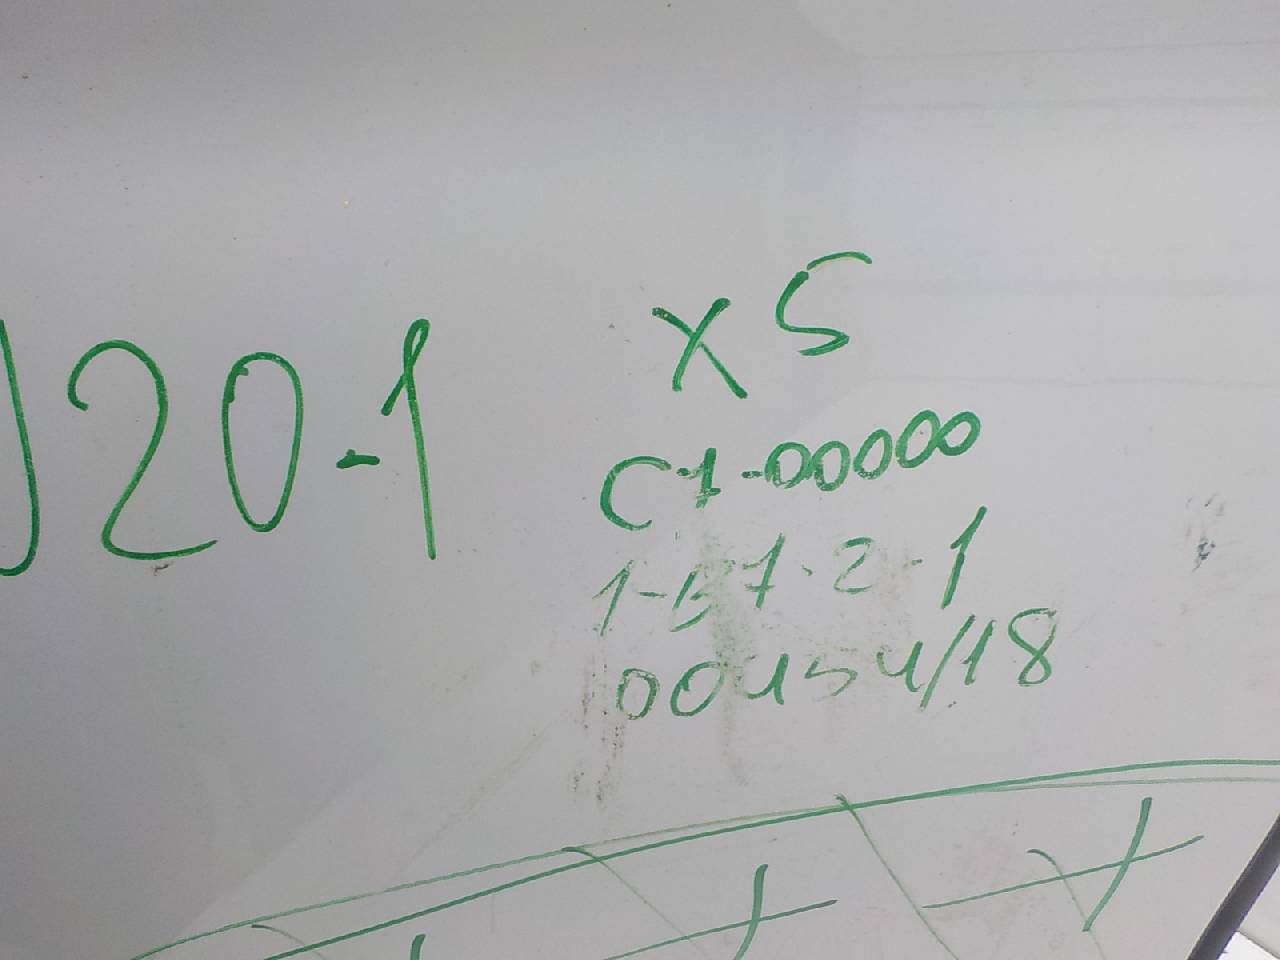 J20-1
X5
C1-00000
1-Б1.2-1
00454/18